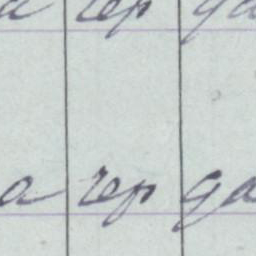 a rep ga
a rep ga